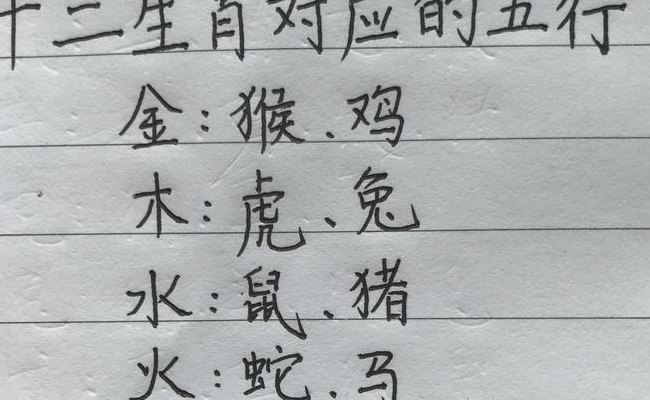 十二生肖对应的五行
金：猴、鸡
木：虎、兔
水：鼠、猪
火：蛇、马